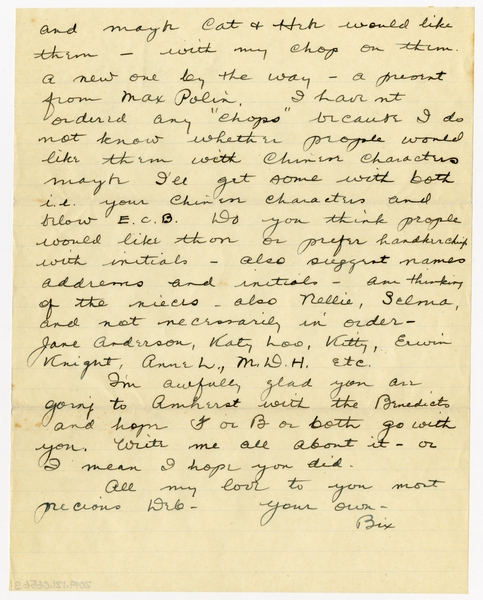 and mayb Cat & Hek would like
them – with my chop on them.
a new one by the way – a present
from Max Polin. I have n't
ordered any "chops" because I do
not know whether people would
like them with Chinese characters
maybe I'll get some with both
i.e. your Chinese characters and
below E.C.B. Do you think people
would like them or prefer handkerchiefs
with initials – also suggest names
address and initials – am thinking
of the nieces – also Nellie, Selma,
and not necessarily in order –
Jane Anderson, Katy Loo, Kitty, Erwin
Knight, Anne L., M.D.H. etc.
I'm awfully glad you are
going to Amherst with the Benedicts
and hope F or B or both go with
you. Write me all about it – or
I mean I hope you did.
All my love to you most
precious Deb – your own –
Bix